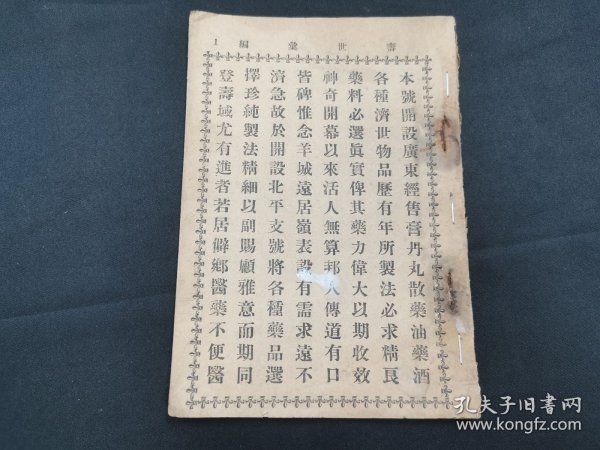 壽世彙編 1
本號開設廣東經售膏丹丸散藥油藥酒
各種濟世物品歷有年所製法必求精良
藥料必選眞實俾其藥力偉大以期收效
神奇開幕以來活人無算邦人傳道有口
皆碑惟念羊城遠居嶺表設有需求遠不
濟急故於開設北平支號將各種藥品選
擇珍純製法精細以副賜顧雅意而期同
登壽域尤有進者若居僻鄉醫藥不便醫
孔夫子旧书网
www.kongfz.com